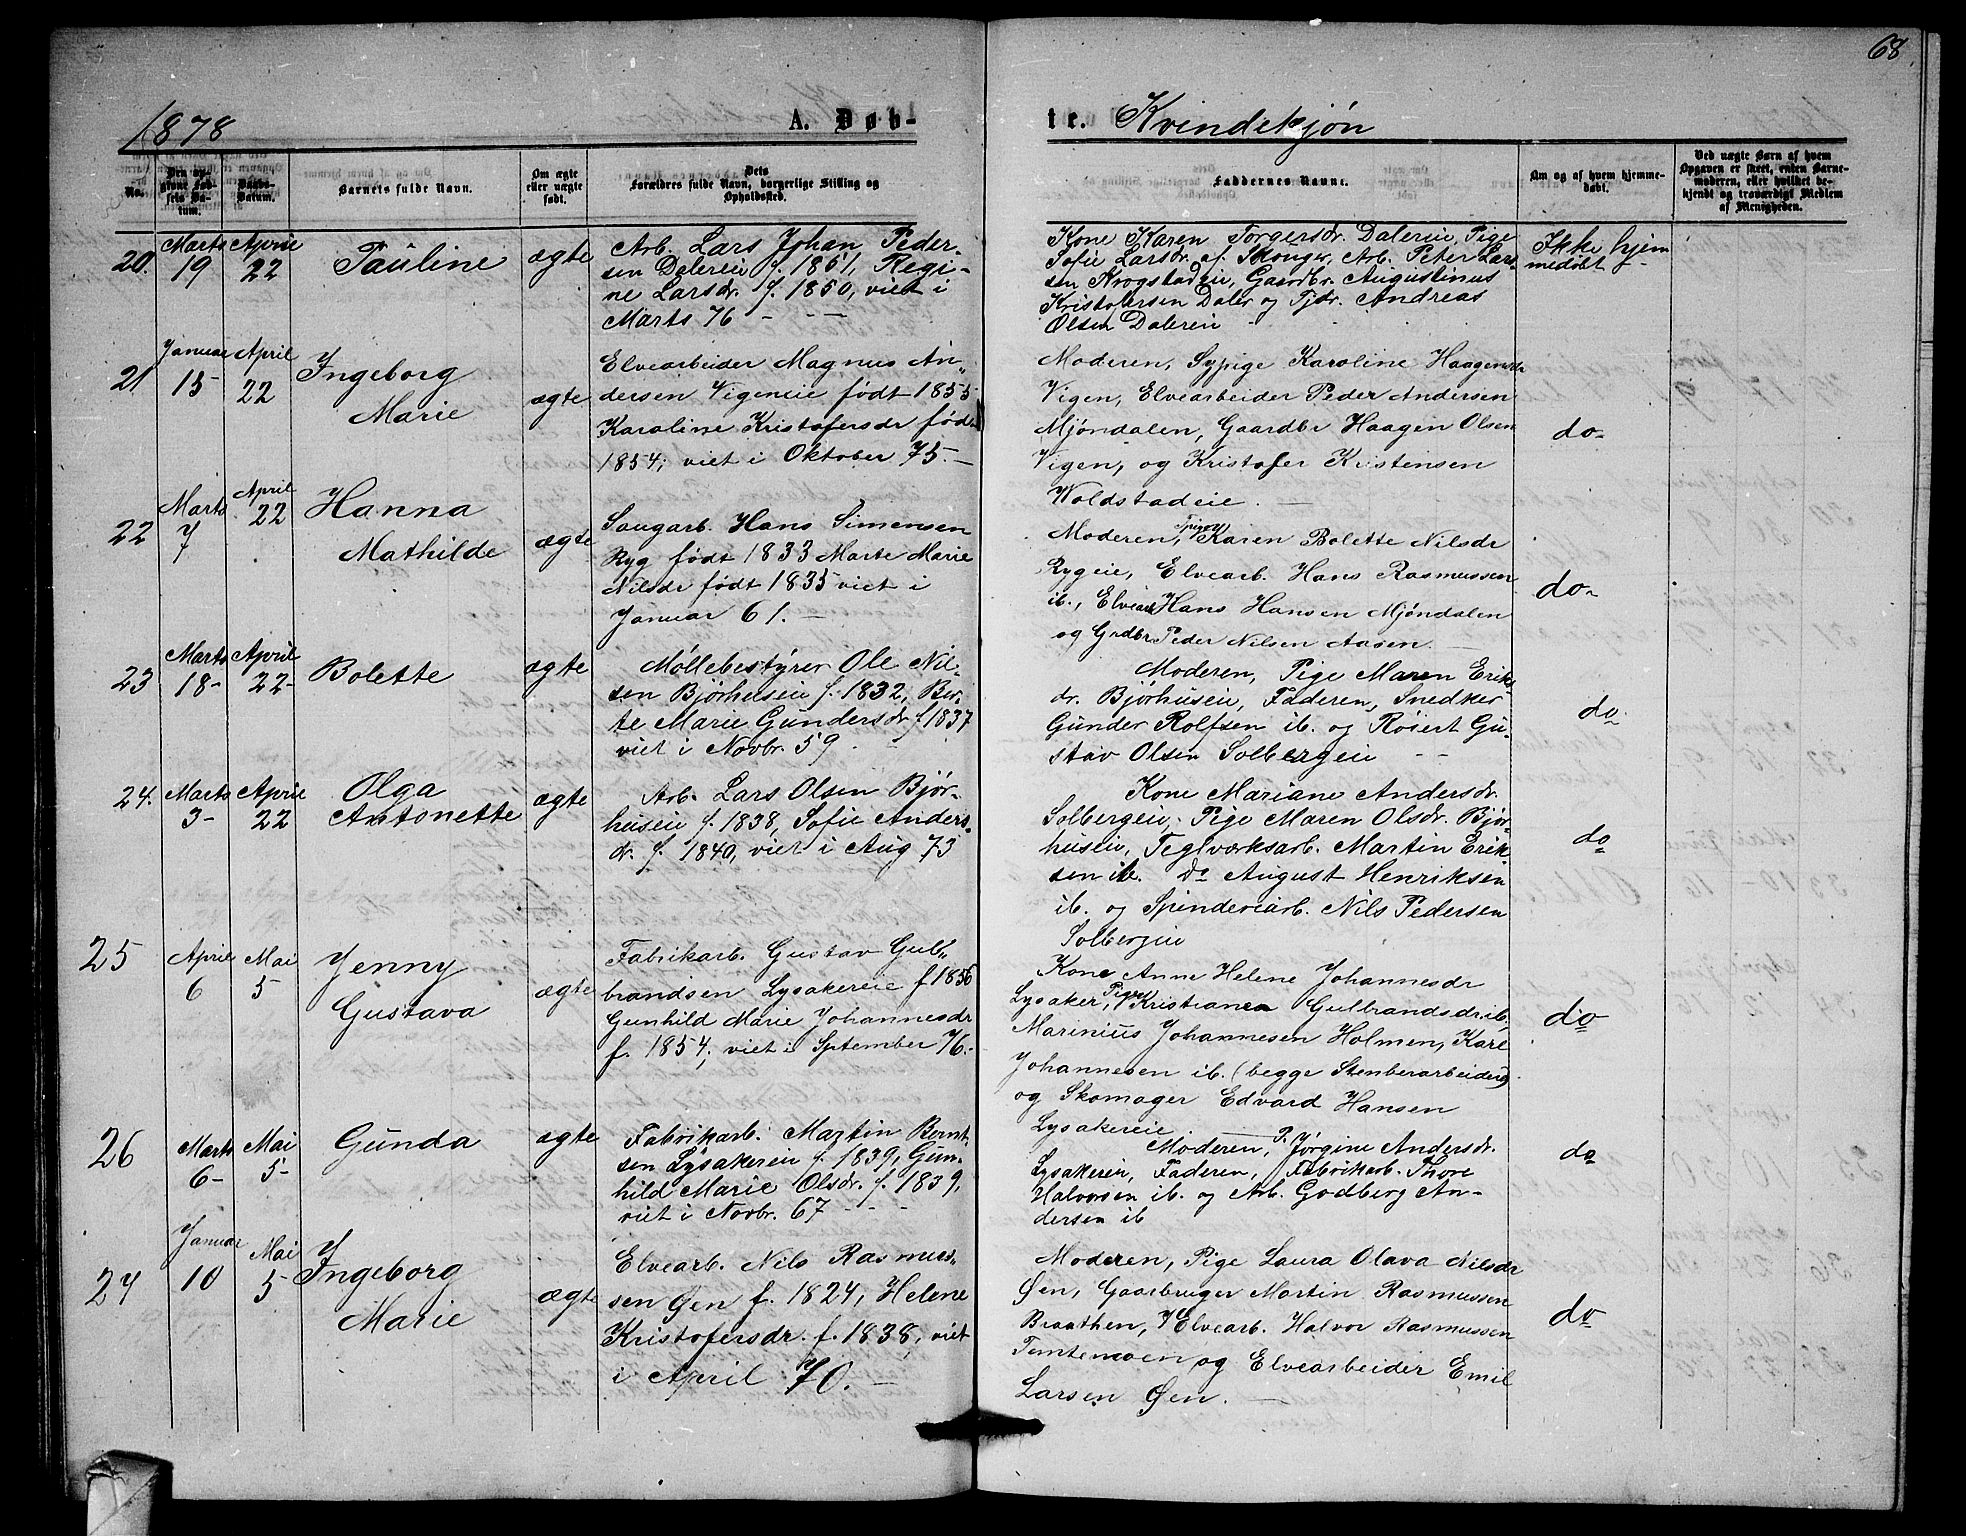 68
1878 A. Døb-
te. Kvindekjøn
No.
Den opgivne Fødselsdatum.
Daabsdatum.
Barnets fulde Navn.
Om ægte eller uægte født.
Dets Forældres fulde Navn, borgerlige Stilling og Opholdssted.
Faddernes Navne.
Om og af hvem hjemmedøbt.
Ved uægte Børn af hvem Opgaven er skeet, enden Barnemoderen, eller hvilket bekjendt og troværdigt Medlem af Menigheden.
20. Marts 19 April 22 Pauline ægte
Arb. Lars Johan Peder-
sen Dalereie f. 1851, Regi-
ne Larsdr. f. 1850, viet i
Marts 76 - - -
Kone Karen Torgersdr. Dalereie, Pige
Sofie Larsdr. af Skouger, Arb. Peter Lars-
sen Krogstadeie, Gaardbr. Augustinus
Kristofersen Daler og Tjdr. Andreas
Olsen Dalereie
Ikke hjem
medøbt
21 Januar 15 April 22 Ingeborg
Marie ægte
Elvearbeider Magnus An„
dersen Vigeneie født 1855
Karoline Kristofersdr født
1854; viet i Oktober 75. -
Moderen, Sypige Karoline Haagensdr
Vigen, Elvearbeider Peder Andersen
Mjøndalen, Gaardbr Haagen Olsen
Vigen, og Kristofer Kristensen
Woldstadeie. -
do-
22 Marts 7 April 22 Hanna
Mathilde ægte
Saugarb. Hans Simensen
Ryg født 1833 Marte Marie
Nilsdr født 1835 viet i
Januar 61. -
Moderen, Pige Karen Bolette Nilsdr
Rygeie, Elvearb. Hans Rasmussen
ib., Elvearb Hans Hansen Mjøndalen
og Grdbr Peder Nilsen Aasen. -
do-
23 Marts 18- April 22- Bolette ægte
Møllebestyrer Ole Nil-
sen Bjørhuseie f. 1832, Ber-
te Marie Gundersdr. f 1837
viet i Novbr. 59
Moderen, Pige Maren Eriks-
dr. Bjørhuseie, Faderen, Snedker
Gunder Rolfsen ib. og Røiert Gu-
stav Olsen Solbergeie
do.
24. Marts 3- April 22 Olga
Antonette ægte
Arb. Lars Olsen Bjør-
huseie f. 1838, Sofie Anders-
dr. f. 1840, viet i Aug 73
Kone Mariane Andersdr.
Solbergeie, Pige Maren Olsdr. Bjør-
huseie, Teglværksarb. Martin Erik
sen ib. Do August Henriksen
ib. og Spinderiarb. Nils Pedersen
Solbergeie
do
25 April 6 Mai 5- Jenny
Gustava ægte
Fabrikarb. Gustav Gul„
brandsen Lysakereie f 1856
Gunhild Marie Johannesdr
f. 1854; viet i Sptember 76.-
Kone Anne Helene Johannesdr
Lysaker, Pige Kristianea Gulbrandsdr. ib,
Marinius Johannesen Holmen, Karl
Johannesen ib. (begge Stenberarbeidere)
og Skomager Edvard Hansen
Lysakereie. -
do
26 Marts 6- Mai 5- Gunda ægte
Fabrikarb. Martin Bernt-
sen Lysakereie f. 1839, Gun-
hild Marie Olsdr. f. 1839,
viet i Novbr. 67 - - -
Moderen, P. Jørgine Andersdr.
Lysakereie, Faderen, Fabrikarb. Thore
Halvorsen ib. og Arb. Godberg An-
dersen ib
do
27 Januar 10 Mai 5- Ingeborg
Marie ægte
Elvearb. Nils Rasmus„
sen Øen f. 1824, Helene
Kristofersdr. f. 1838, viet
i April 70. -
Moderen, Pige Laura Olava Nilsdr
Øen, Gaarbruger Martin Rasmussen
Braathen, Elvearb. Halvor Rasmussen
Tomtemoen og Elvearbeider Emil
Larsen Øen. -
do